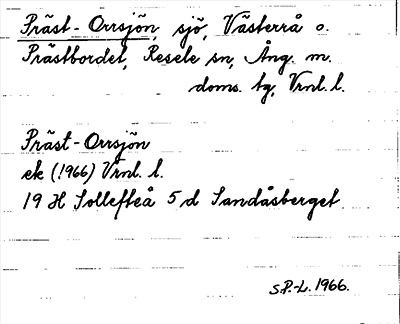 Präst-Orrsjön, sjö, Västerrå o.
Prästbordet, Resele sn, Ång. m.
doms. tg, Vrnl. l.
Präst-Orrsjön
ek (1966) Vrnl. l.
19 H Sollefteå 5 d Sandåsberget
S.P.-L. 1966.